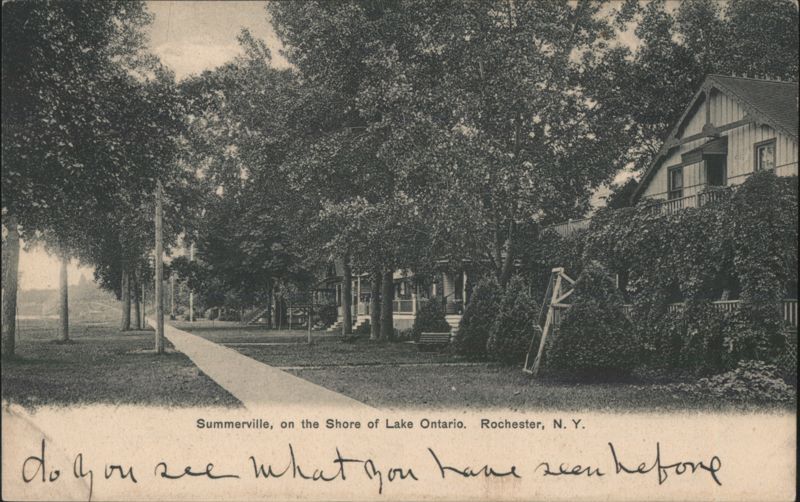 Summerville, on the Shore of Lake Ontario. Rochester, N. Y.
do you see what you have seen before